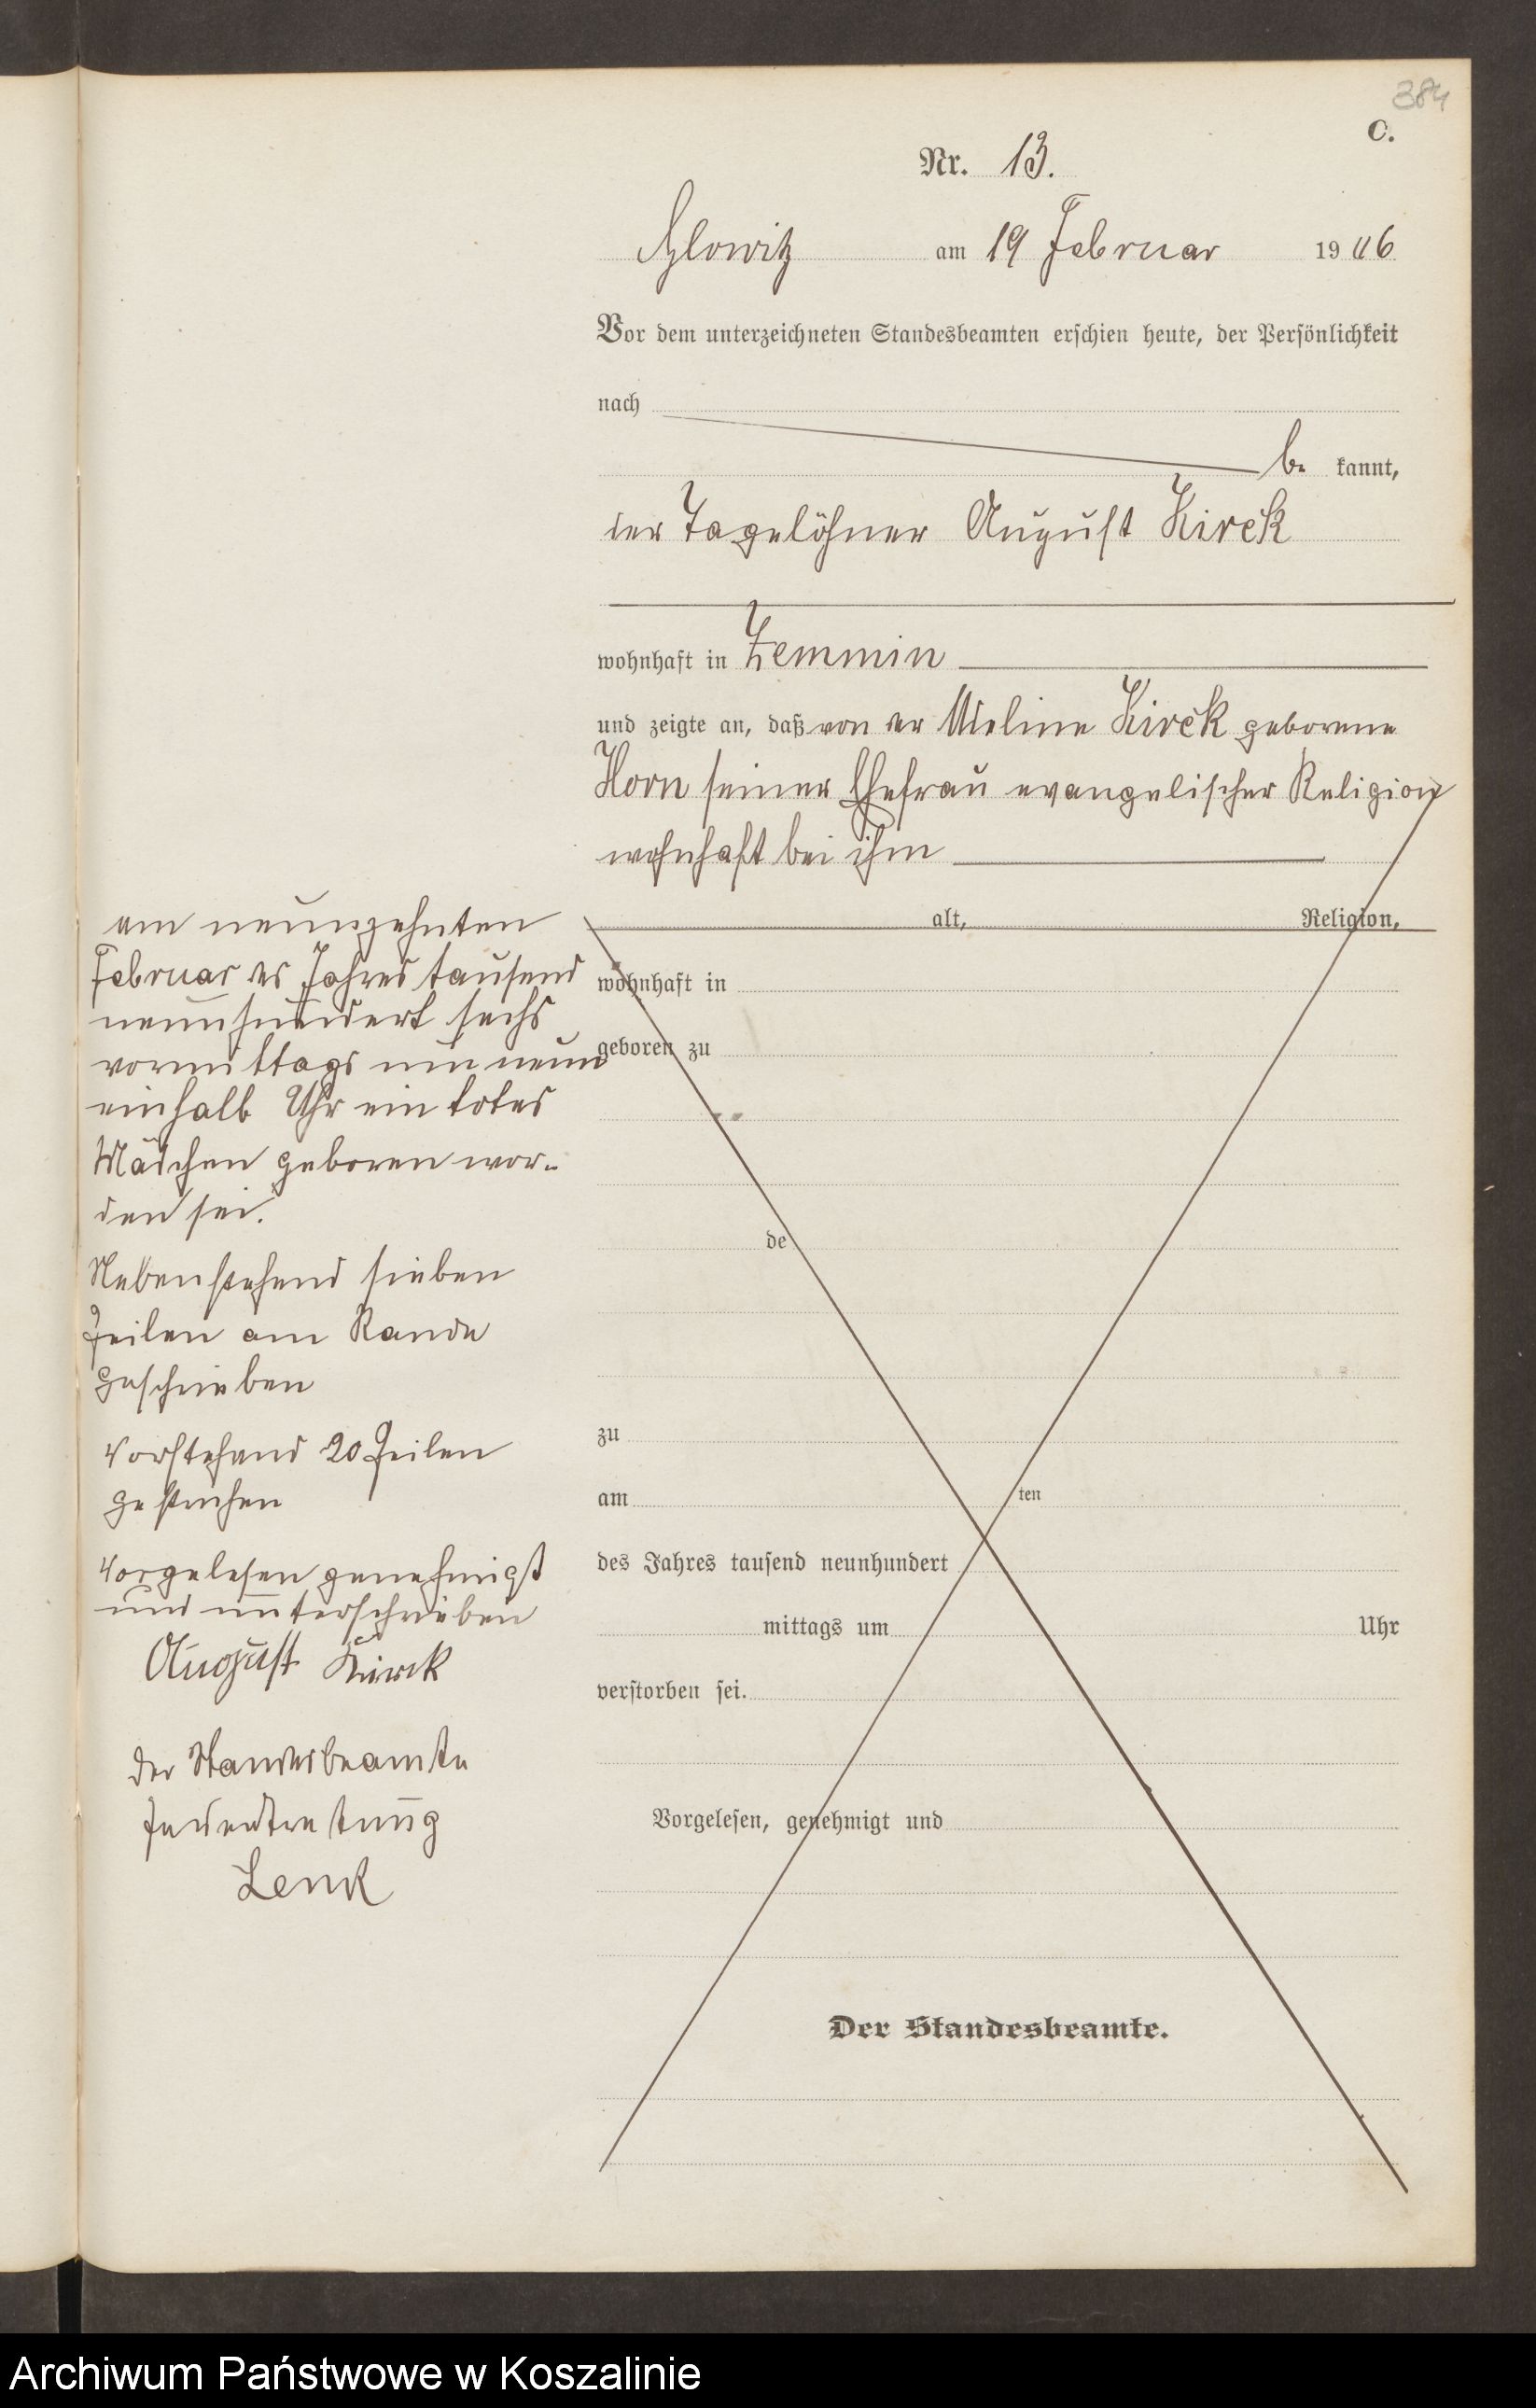 384
C.
Nr. 13.
am 19 Februar 1906
Vor dem unterzeichneten Standesbeamten erschien heute, der Persönlichkeit
nach
be kannt,
der Tagelöhner August Kirck
wohnhaft in Zemmin
und zeigte an, daß von der Kirck geborene
Horn seiner Ehefrau evangelischer Religion
wohnhaft bei ihm
alt, Religion,
am neunzehnten
Februar des Jahres tausend
neunhundert sechs
vormittags um neun
einhalb Uhr ein totes
Mädchen geboren wor-
den sei.
Nebenstehend sieben
Zeilen am Rande
geschrieben
Vorstehend 20 Zeilen
gestrichen
Vorgelesen genehmigt
und unterschrieben
August Kirck
Der Standesbeamte
In Vertretung
Lenk
wohnhaft in
geboren zu
de
zu
am ten
des Jahres tausend neunhundert
mittags um Uhr
verstorben sei.
Vorgelesen, genehmigt und
Der Standesbeamte.
Archiwum Państwowe w Koszalinie